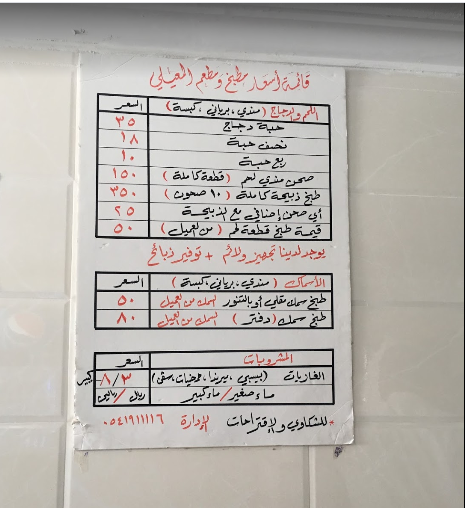 قائمة أسعار مطبخ ومطعم المعيلي
اللحم والدجاج (مندي، برياني، كبسة) السعر
حبة دجاج ٣٥
نصف حبة ١٨
ربع حبة ١٠
صحن مندي لحم (قطعة كاملة) ١٥٠
طبخ ذبيحة كاملة (١٠ صحون) ٣٥٠
أي صحن إضافي مع الذبيحة ٢٥
قيمة طبخ قطعة لحم (من العميل) ٥٠
يوجد لدينا تجهيز ولائم + توفير ذبائح
الأسماك (مندي، برياني، كبسة) السعر
طبخ سمك مقلي أو بالتنور السمك من العميل ٥٠
طبخ سمك (دفتر) السمك من العميل ٨٠
المشروبات السعر
الغازيات (بيبسي، ميرندا، حمضيات، ) ٨/٣ كبير
ماء صغير / ماء كبير ريال / ريالين
* للشكاوي والإقتراحات الإدارة ٠٥٤١٩١١١١٦